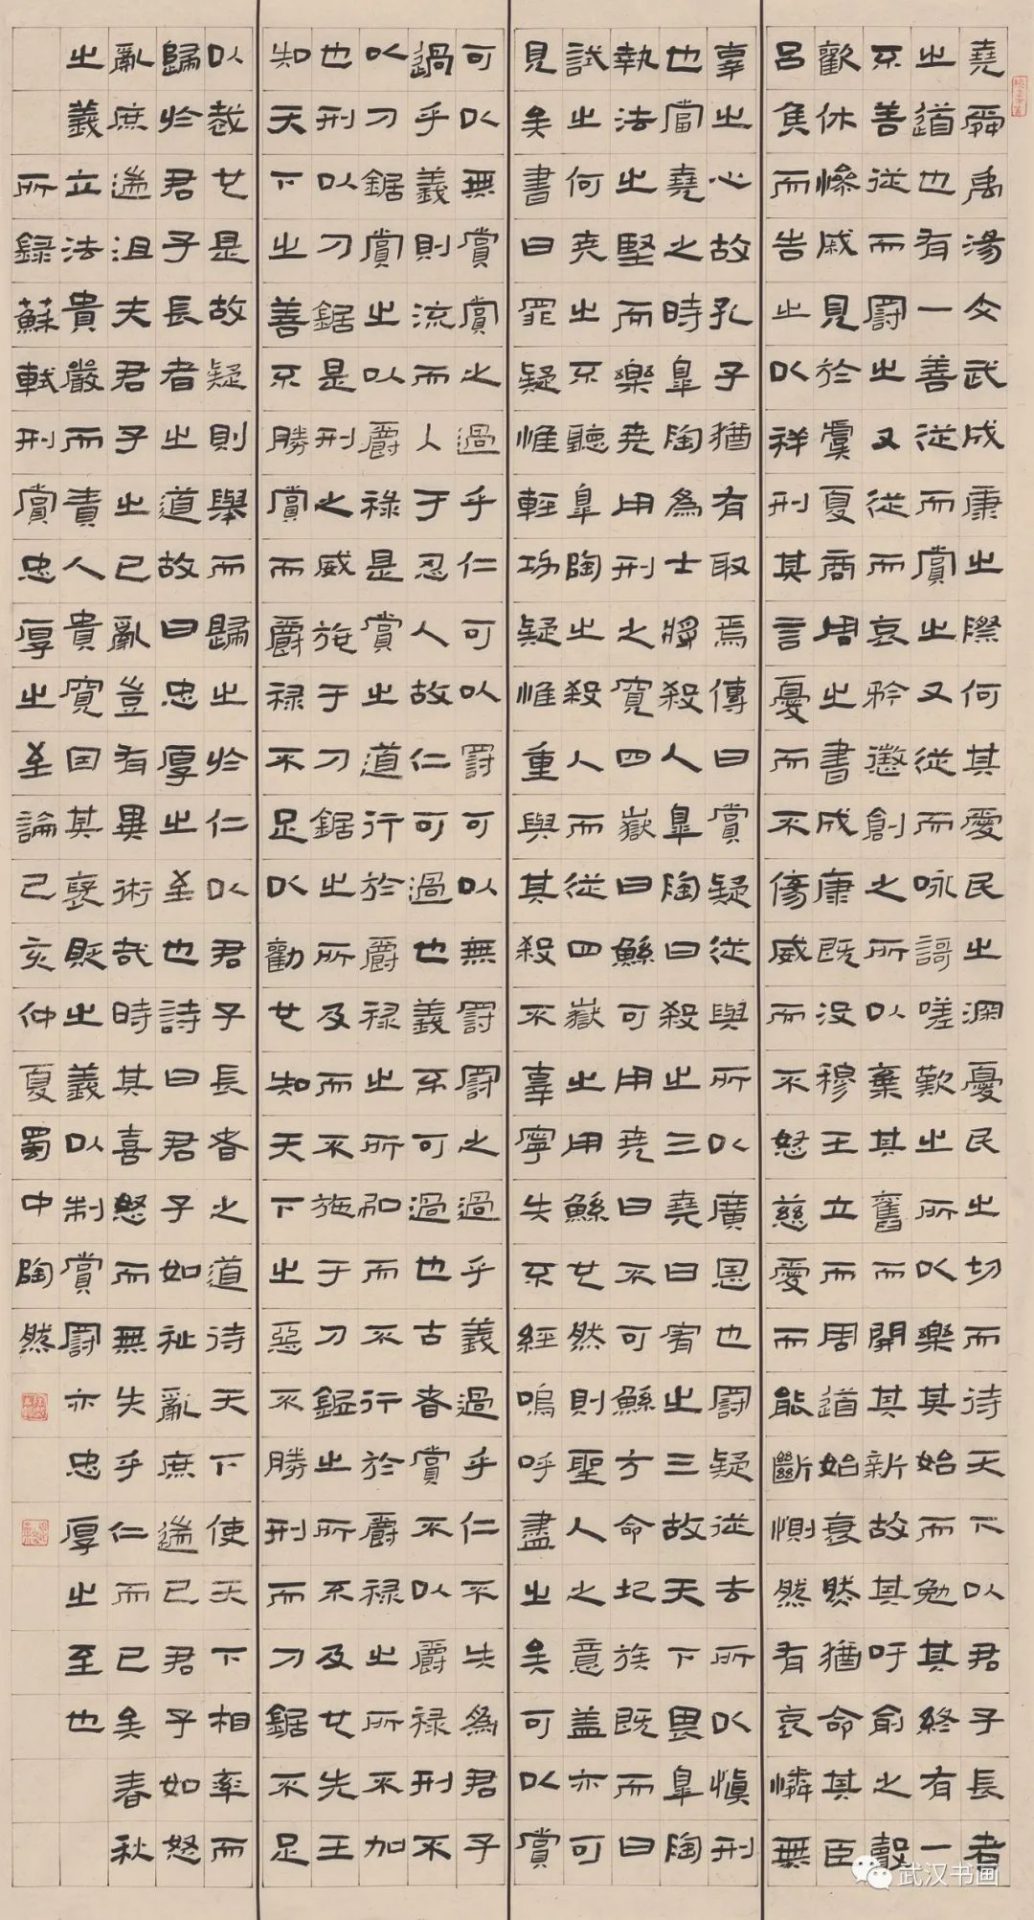 堯舜禹湯文武成康之際何其愛民之深憂民之切而待天下以君子長者
之道也有一善從而賞之又從而咏謌嗟歎之所以樂其始而勉其終有一
不善從而罰之又從而哀矜懲創之所以棄其舊而開其新故其吁俞之聲
歡休慘戚見於虞夏商周之書成康既没穆王立而周道始衰然猶命其臣
吕侯而告之以祥刑其言憂而不傷威而不怒慈愛而能斷惻然有哀憐無
辜之心故孔子猶有取焉傳曰賞疑從與所以廣恩也罰疑從去所以慎刑
也當堯之時皋陶為士將殺人皋陶曰殺之三堯曰宥之三故天下畏皋陶
執法之堅而樂堯用刑之寬四嶽曰鯀可用堯曰不可鯀方命圮族既而曰
試之何堯之不聽皋陶之殺人而從四嶽之用鯀也然則聖人之意盖亦可
見矣書曰罪疑惟輕功疑惟重與其殺不辜寧失不經嗚呼盡之矣可以賞
可以無賞賞之過乎仁可以罰可以無罰罰之過乎義過乎仁不失為君子
過乎義則流而入于忍人故仁可過也義不可過也古者賞不以爵禄刑不
以刀鋸賞之以爵禄是賞之道行於爵禄之所加而不行於爵禄之所不加
也刑以刀鋸是刑之威施于刀鋸之所及而不施于刀鋸之所不及也先王
知天下之善不勝賞而爵禄不足以勸也知天下之惡不勝刑而刀鋸不足
以裁也是故疑則舉而歸之於仁以君子長者之道待天下使天下相率而
歸於君子長者之道故曰忠厚之至也詩曰君子如祉亂庶遄已君子如怒
亂庶遄沮夫君子之已亂豈有異術哉時其喜怒而無失乎仁而已矣春秋
之義立法貴嚴而責人貴寬因其褒貶之義以制賞罰亦忠厚之至也
所録蘇軾刑賞忠厚之至論己亥仲夏蜀中陶然
武汉书画